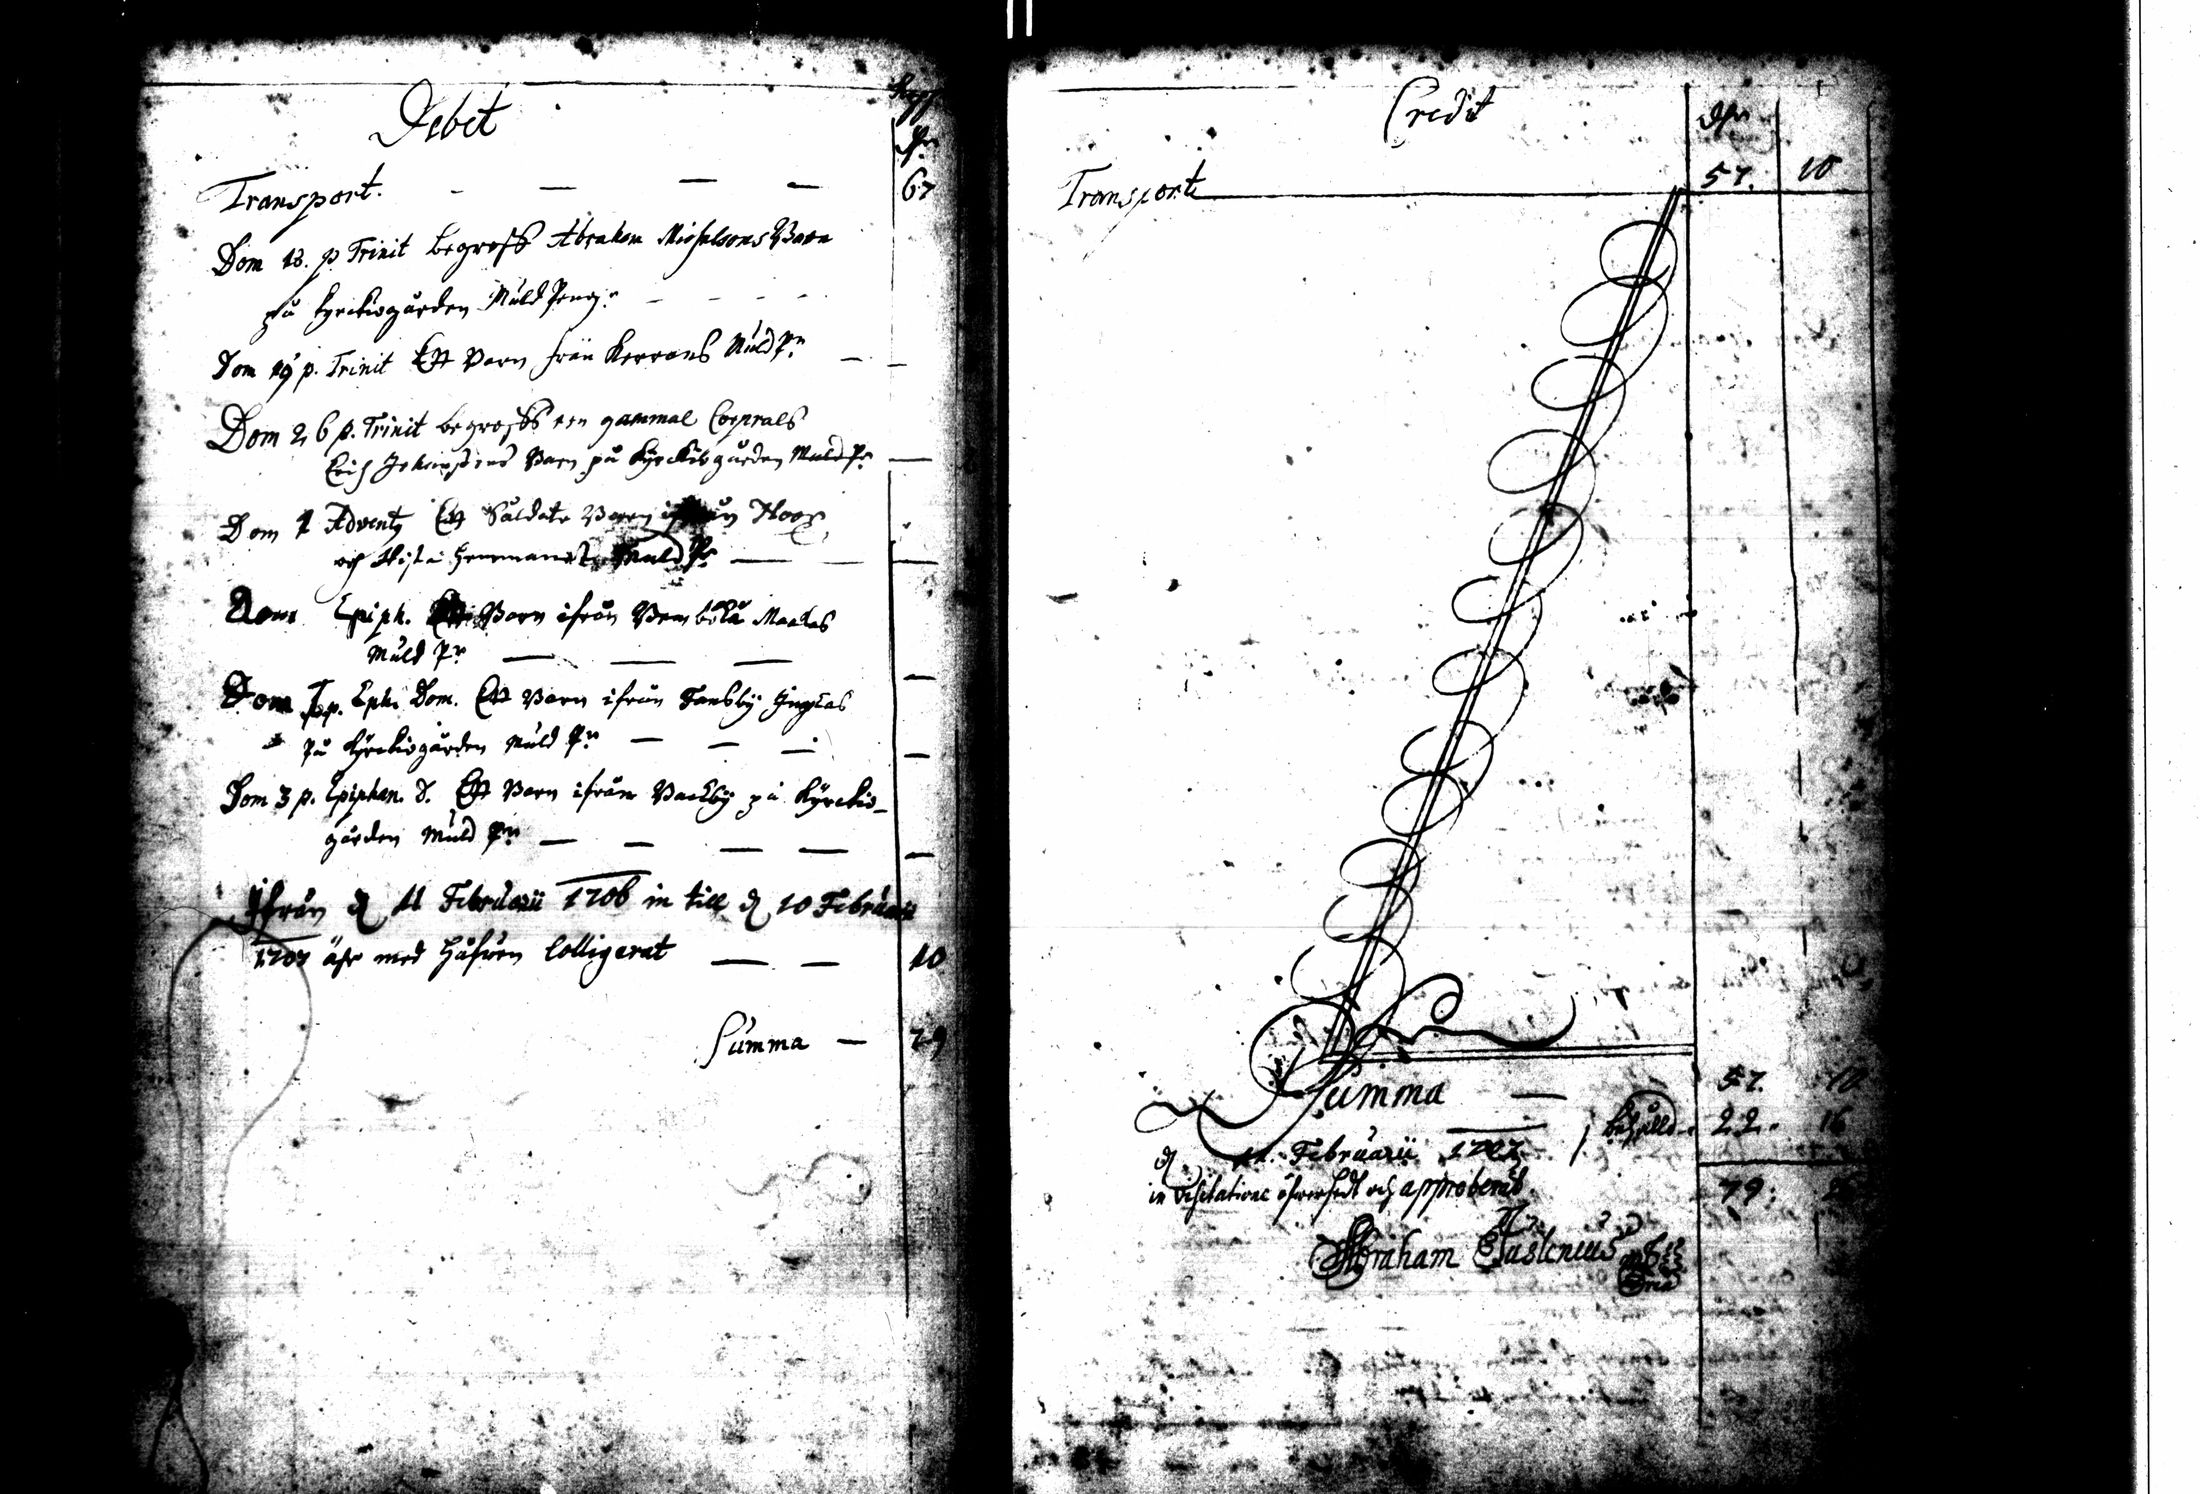 Debet
Transport. 67
Dom 18. p Trinit begrofs Abraham Michelsons Barn
på kyrkiogården Muld Peng:r
Dom 19 p. Trinit Ett Barn från Muld P:r
Dom 26 p. Trinit begrofs een gammal Corprals
Erich Johanssons Barn på Kyrckiogården Muld P:r
Dom 1 Advent Ett Saldate Barn
och Muld P:r
Dom Epiph. Ett Barn ifrån
Muld P:r
Dom 1 p. Eph. Dom. Ett Barn ifrån
På Kyrckiogården Muld P:r
Dom 3 p. Epiphan. D. Ett Barn ifrån Backby på Kyrckio-
gården Muld P:r
Ifrån d 11 Februarii 1706 in till d 10 Februarii
1707 åhr med Håfwen Colligerat 10
Summa 79
Credit
Transport 57. 10
Summa 57. 10
behålld. 22. 16
d 11. Februarii 1707
in Visitatione öfwersedt och approberat. 79: 26
Abraham